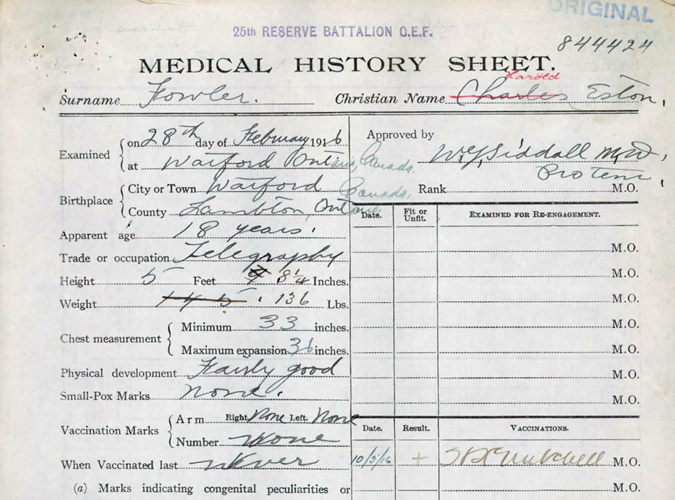 ORIGINAL
25th RESERVE BATTALION C.E.F.
844424
MEDICAL HISTORY SHEET.
Harold
Surname Fowler. Christian Name Charles Eston,
Examined { on 28th day of February 1916 Approved by
at Watford Ontario, Canada. W.J. Siddall M.D.
Pro tem,
Birthplace { City or Town Watford Canada, Rank M.O.
County Lambton, Ontario Date. Fit or Unfit. EXAMINED FOR RE-ENGAGEMENT.
Apparent age 18 years. M.O.
Trade or occupation Telegraphy M.O.
Height 5 Feet 8 1/4 Inches. M.O.
Weight 145. 136 Lbs. M.O.
Chest measurement { Minimum 33 inches. M.O.
Maximum expansion 36 inches. M.O.
Physical development Fairly good M.O.
Small-Pox Marks None. M.O.
Vaccination Marks { Arm Right None Left. None Date. Result. VACCINATIONS.
Number None
When Vaccinated last Never 10/5/16 + M.O.
(a) Marks indicating congenital peculiarities or M.O.